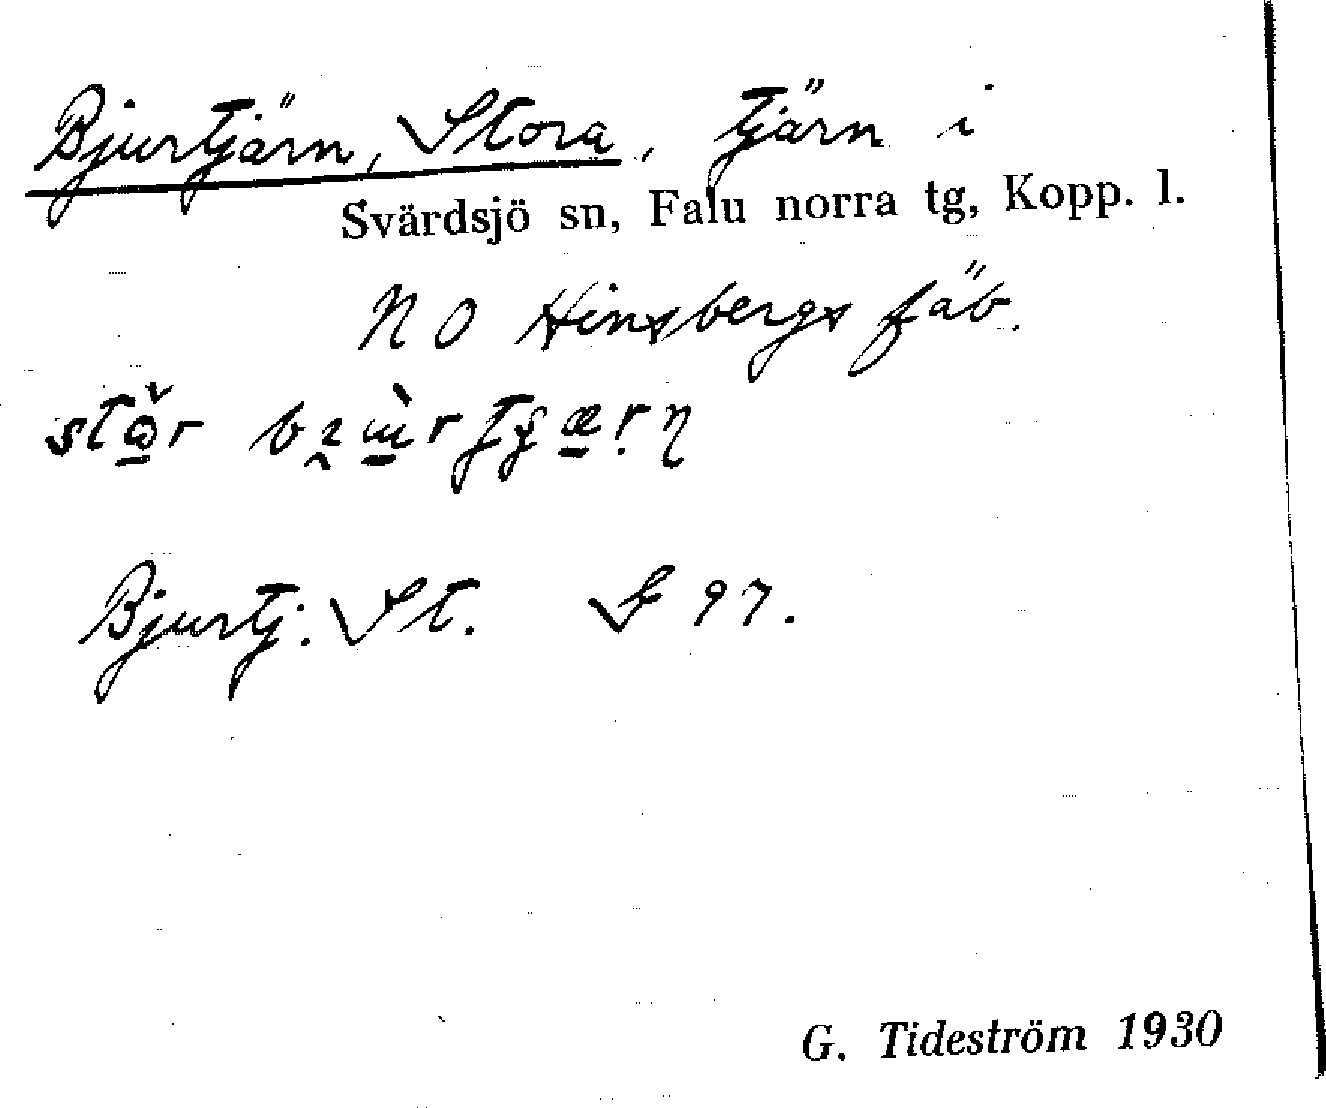 Bjurtjärn, Stora, tjärn i
Svärdsjö sn, Falu norra tg, Kopp. l.
NO Hinsbergs fäb.
Bjurtj. St. S 97.
G. Tideström 1930